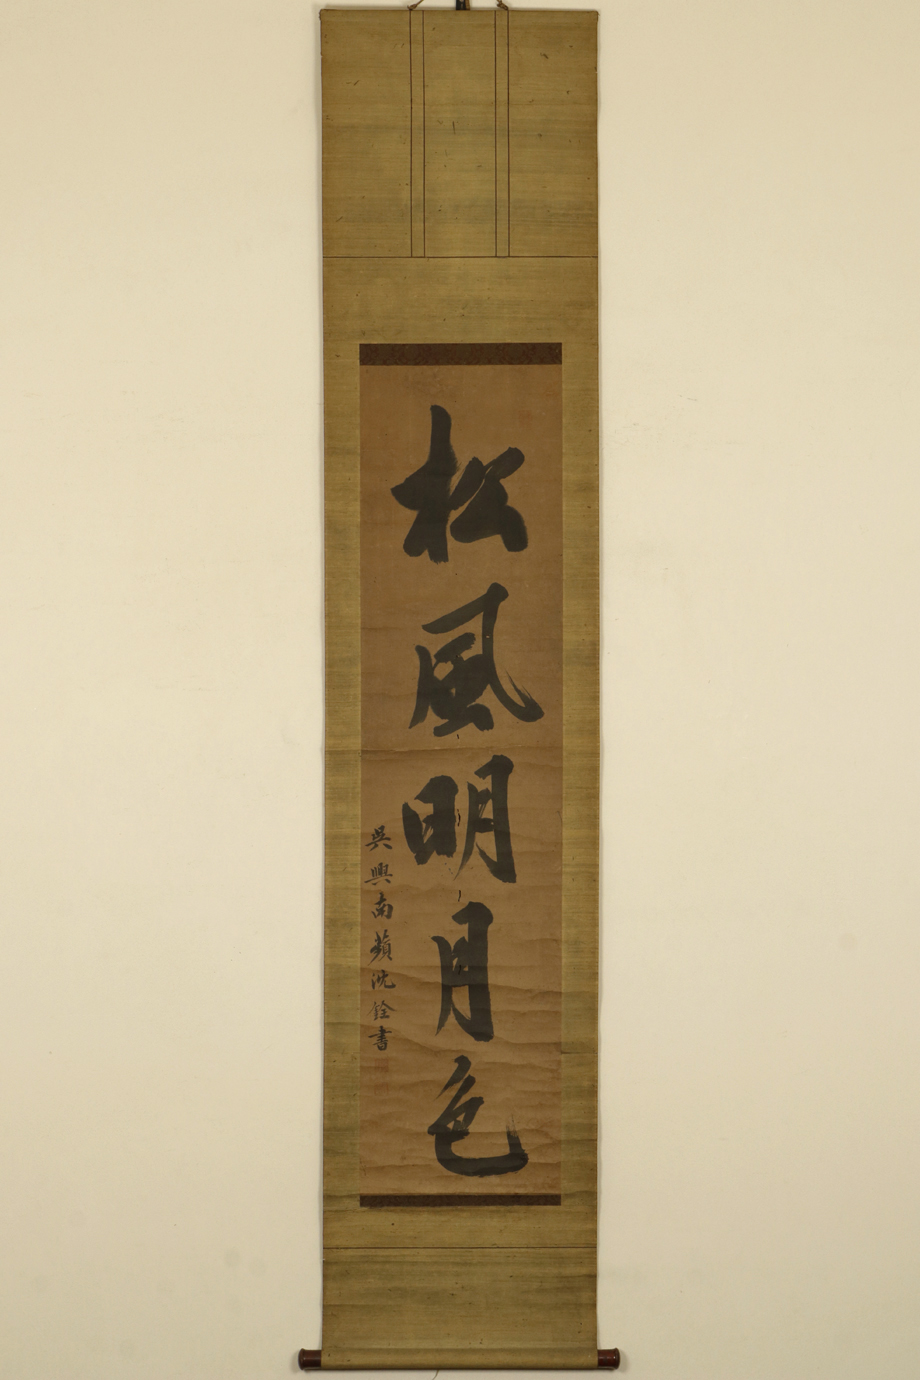 松風明月色
吳興南蘋沈銓書